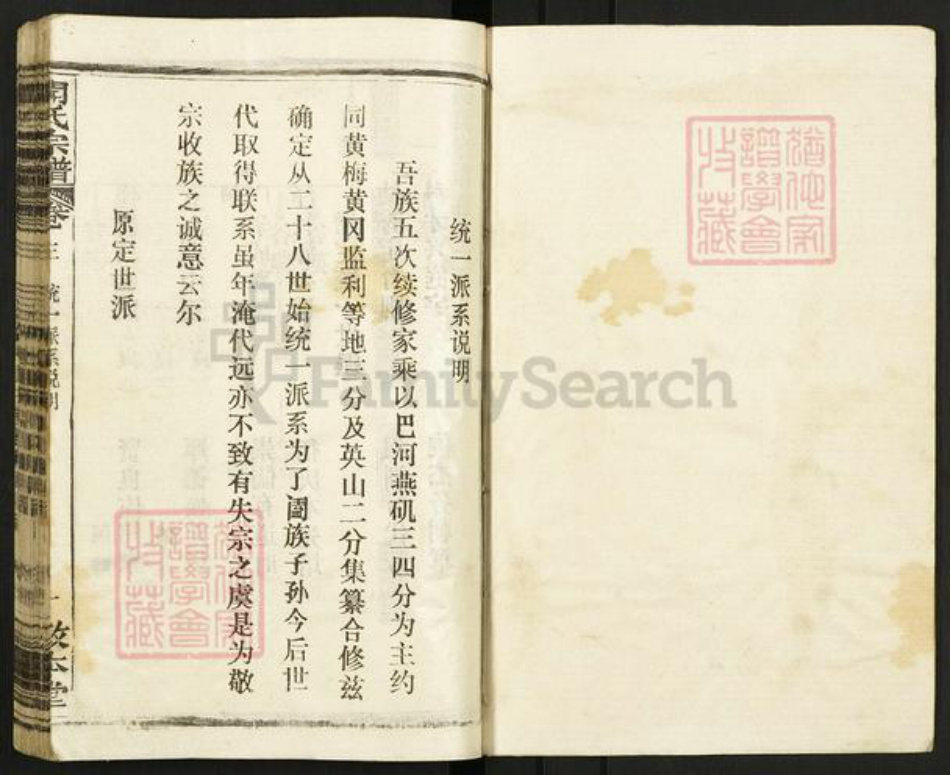 统一派系说明
吾族五次续修家乘以巴河燕矶三四分为主约
同黄梅黄冈监利等地三分及英山二分集纂合修兹
确定从二十八世始统一派系为了阖族子孙今后世
代取得联系虽年淹代远亦不致有失宗之虞是为敬
宗收族之诚意云尔
原定世派
氏宗谱
卷三
统一派系说明
一
本堂
FamilySearch
譜學會
收藏
譜學會
收藏